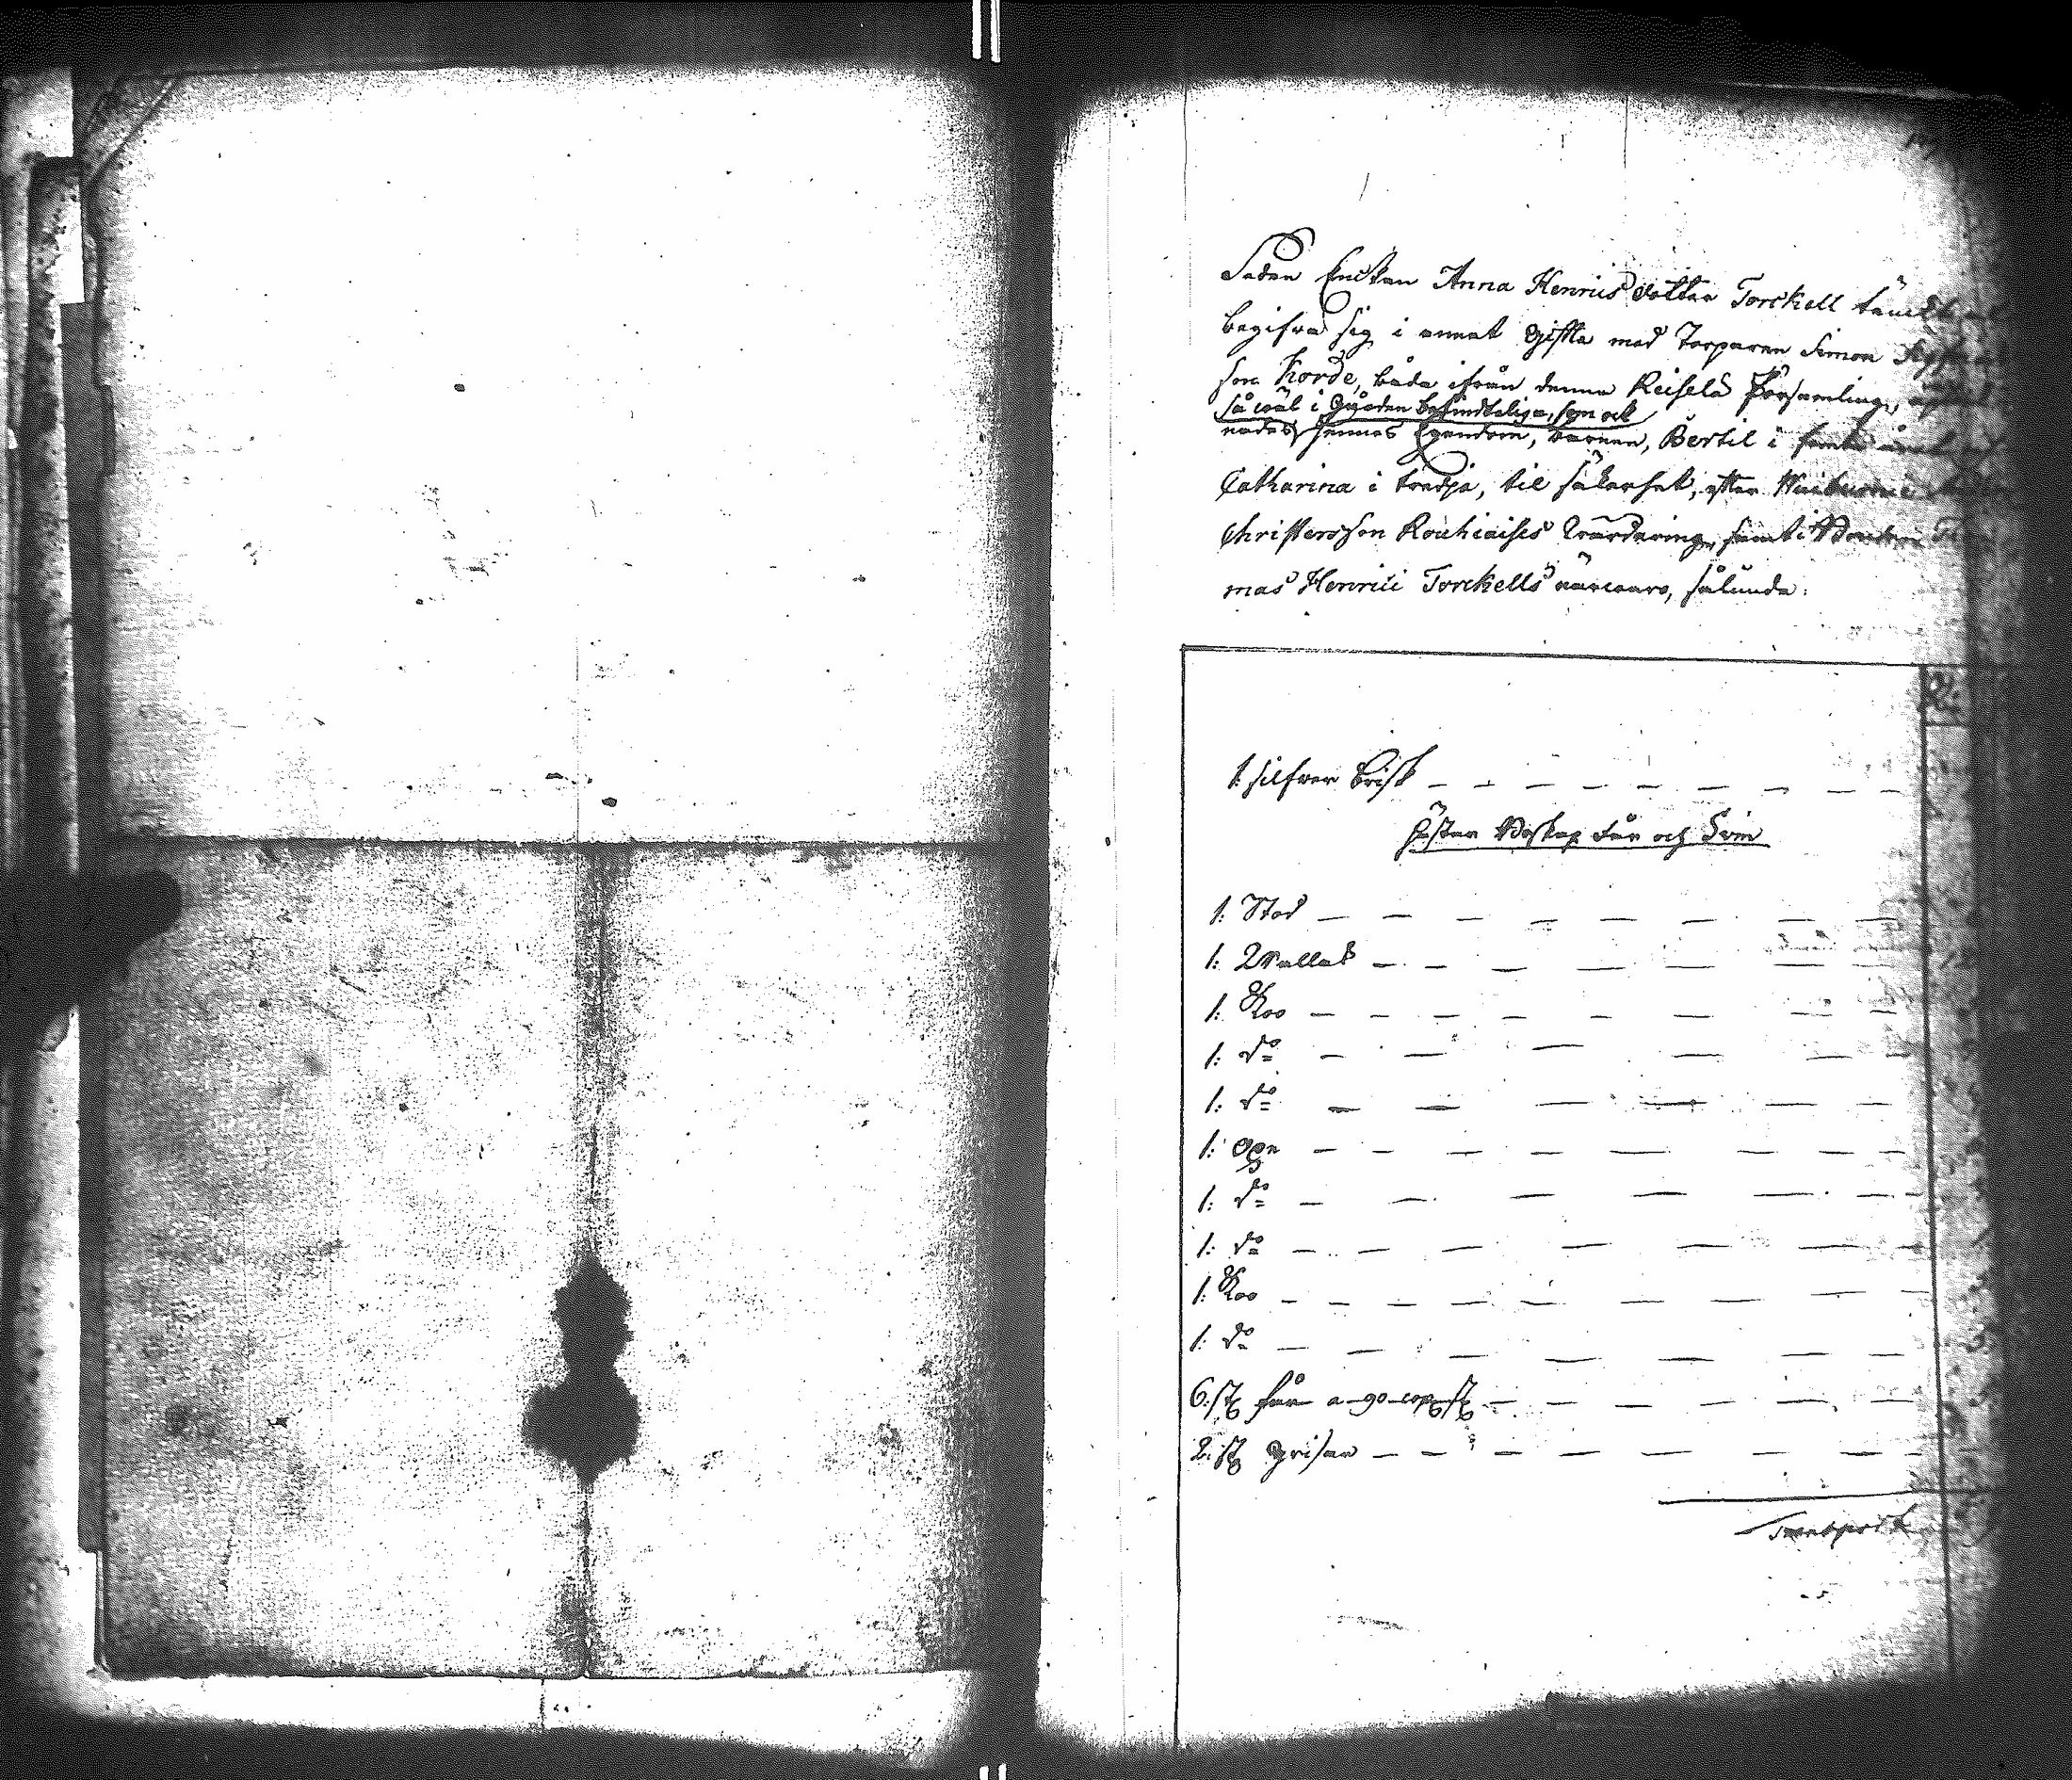 Sedan Enckan Anna Henrics dotter Torckell
begifva sig i annat Gifte med Torparen Simon
son Korde, båda ifrån denna Reisela Församling,
så wäl i Gården befindteliga, som ock
nades hennes Egendom, barnen, Bertil i femte
Catharina i tredje, til säkerhet, efter
Christersson Rouhiaises Wärdering, samt i Bonden
mas Henrici Torckells närwaro, sålunda:
1. silfwer Brisk
Hästar Boskap Får och Svin
1: Stod
1: Wallak
1: Koo
1: do
1: do
1:
1: do
1: do
1: Koo
1: do
6: st får a 90 cop st
2: st Grisar
Transport